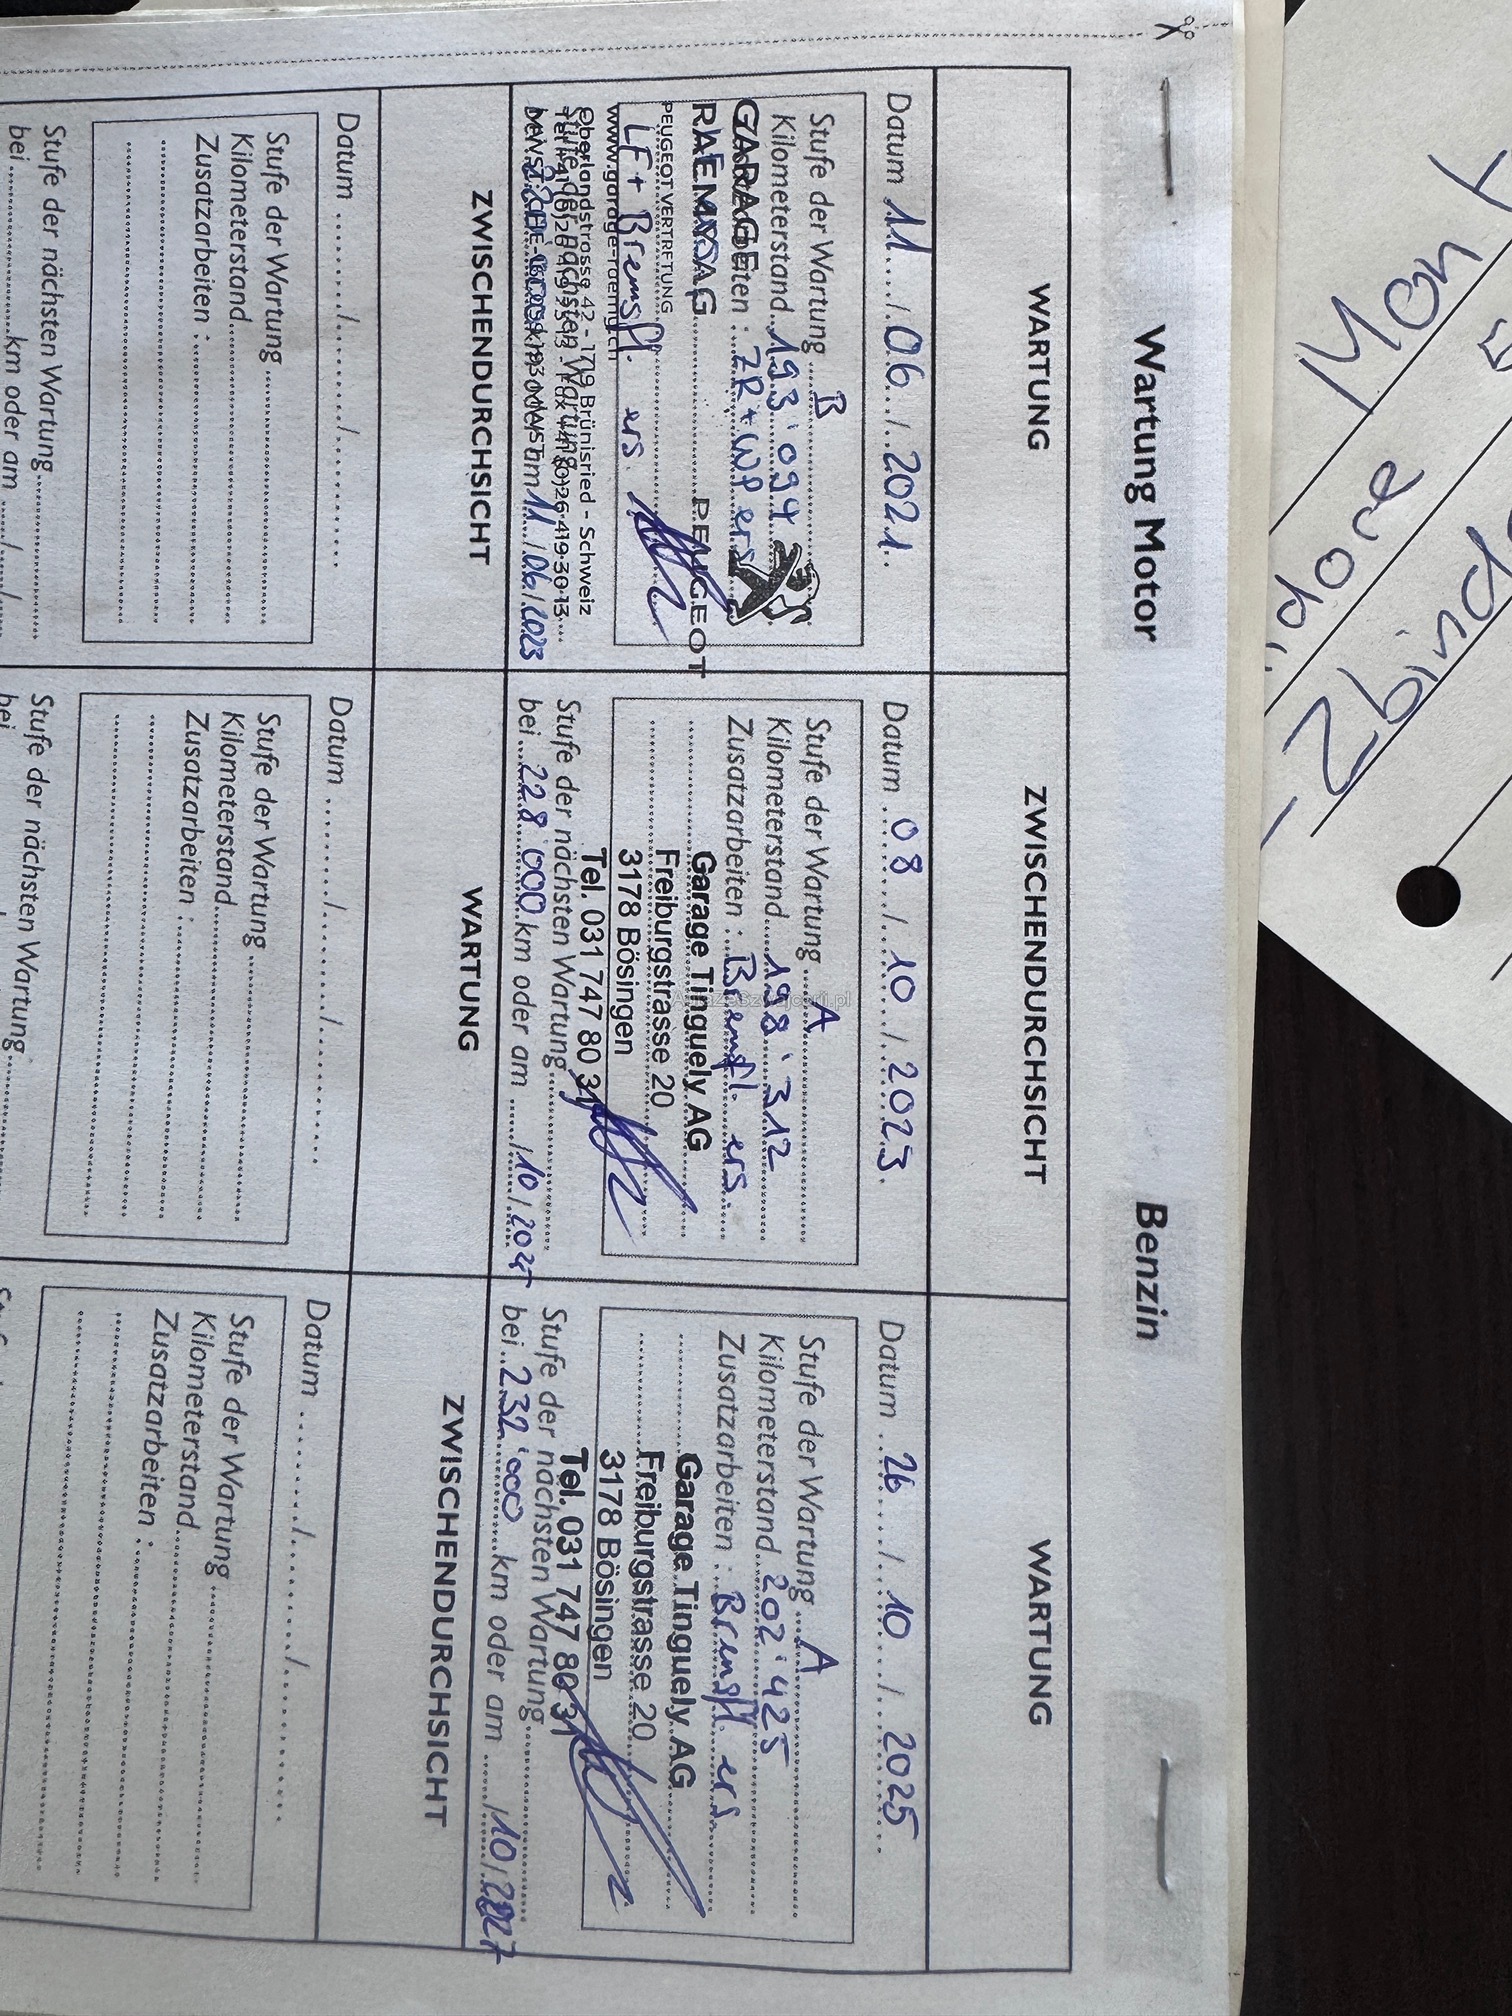 Wartung Motor Benzin
WARTUNG
Datum 11 / 06 / 2021
Stufe der Wartung B
Kilometerstand 193'094
Zusatzarbeiten : ZR + WP ers
GARAGE
RAEMY AG
PEUGEOT
PEUGEOT VERTRETUNG
LF + Bremsfl. ers.
www.garage-raemy.ch
Oberlandstrasse 42 - 1719 Brünisried - Schweiz
Stufe der nächsten Wartung
km oder am 11 / 06 / 2023
ZWISCHENDURCHSICHT
Datum 08 / 10 / 2023
Stufe der Wartung A
Kilometerstand 198'312
Zusatzarbeiten : Bremsfl. ers.
Garage Tinguely AG
Freiburgstrasse 20
3178 Bösingen
Tel. 031 747 80 31
Stufe der nächsten Wartung
bei 228'000 km oder am / 10 / 2025
WARTUNG
Datum 26 / 10 / 2025
Stufe der Wartung A
Kilometerstand 202'425
Zusatzarbeiten : Bremsfl. ers
Garage Tinguely AG
Freiburgstrasse 20
3178 Bösingen
Tel. 031 747 80 31
Stufe der nächsten Wartung
bei 232'000 km oder am / 10 / 2027
ZWISCHENDURCHSICHT
Datum / /
Stufe der Wartung
Kilometerstand
Zusatzarbeiten :
Stufe der nächsten Wartung
bei km oder am / /
WARTUNG
Datum / /
Stufe der Wartung
Kilometerstand
Zusatzarbeiten :
Stufe der nächsten Wartung
bei
ZWISCHENDURCHSICHT
Datum / /
Stufe der Wartung
Kilometerstand
Zusatzarbeiten :